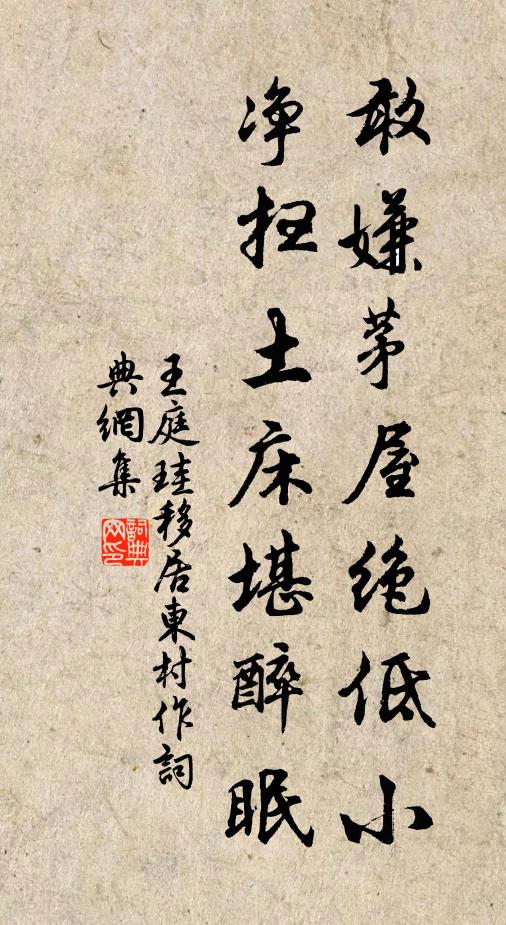 敢嫌茅屋绝低小
净扫土床堪醉眠
王庭珪移居東村作詞
典網集
詞典网印